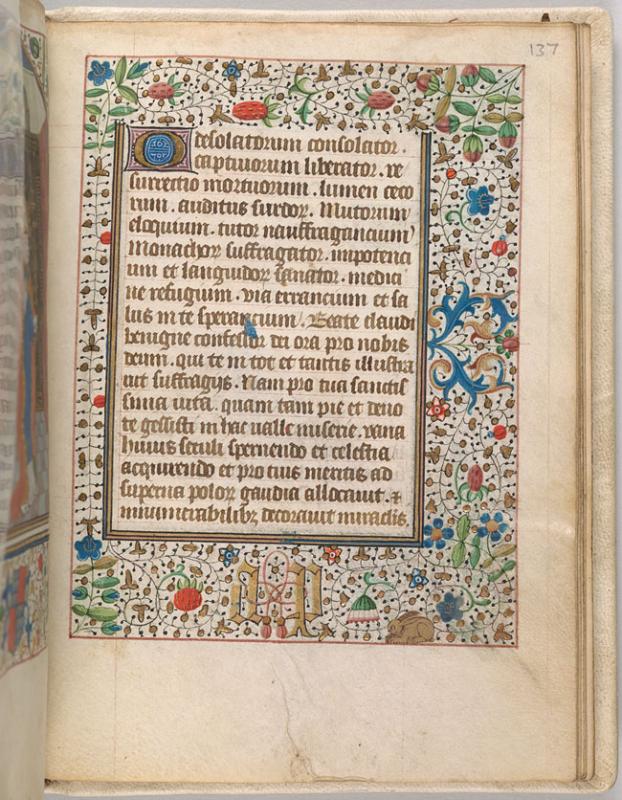 137
O desolatorum consolator.
captiuorum liberator. re
surrectio mortuorum. lumen ceco
rum. auditus surdoꝝ. Mutorum
eloquium. tutor nauffragancium
Monachoꝝ suffragator. impotenci
um et languidoꝝ sanator. medici
ne refugium. via errancium et sa
lus in te sperancium. Beate claudi
benigne confessor dei ora pro nobis
deum. qui te in tot et tantis illustra
uit suffragijs. Nam pro tua sanctis
sima vita. quam tam pie et deuo
te gessisti in hac valle miserie. vana
huius seculi spernendo et celestia
acquirendo et pro tuis meritis ad
superna poloꝝ gaudia allocauit. ⁊
innumerabilibꝫ decorauit miraclis.